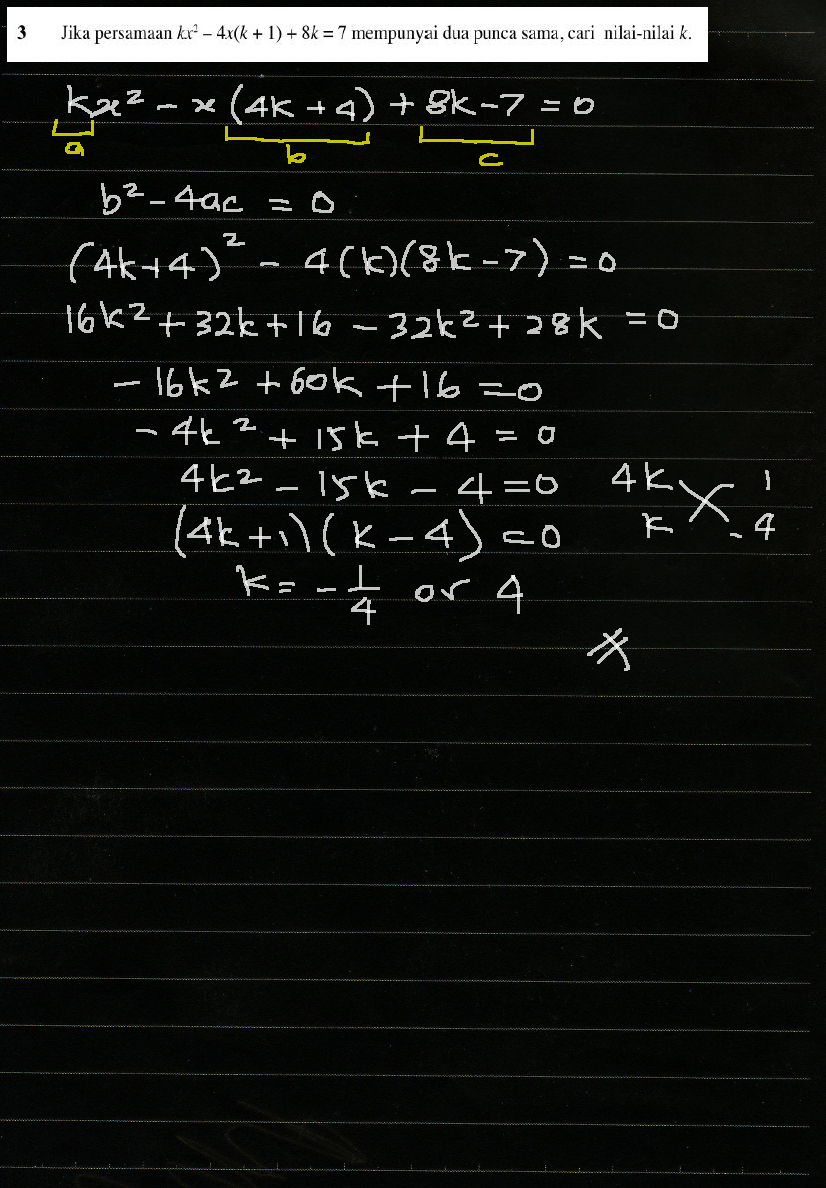 3 Jika persamaan kx² – 4x(k + 1) + 8k = 7 mempunyai dua punca sama, cari nilai-nilai k.
kx² - x(4k + 4) + 8k - 7 = 0
a b c
b² - 4ac = 0
(4k+4)² - 4(k)(8k-7) = 0
16k² + 32k + 16 - 32k² + 28k = 0
-16k² + 60k + 16 = 0
-4k² + 15k + 4 = 0
4k² - 15k - 4 = 0 4k 1
(4k+1)(k-4) = 0 k -4
k = -1/4 or 4